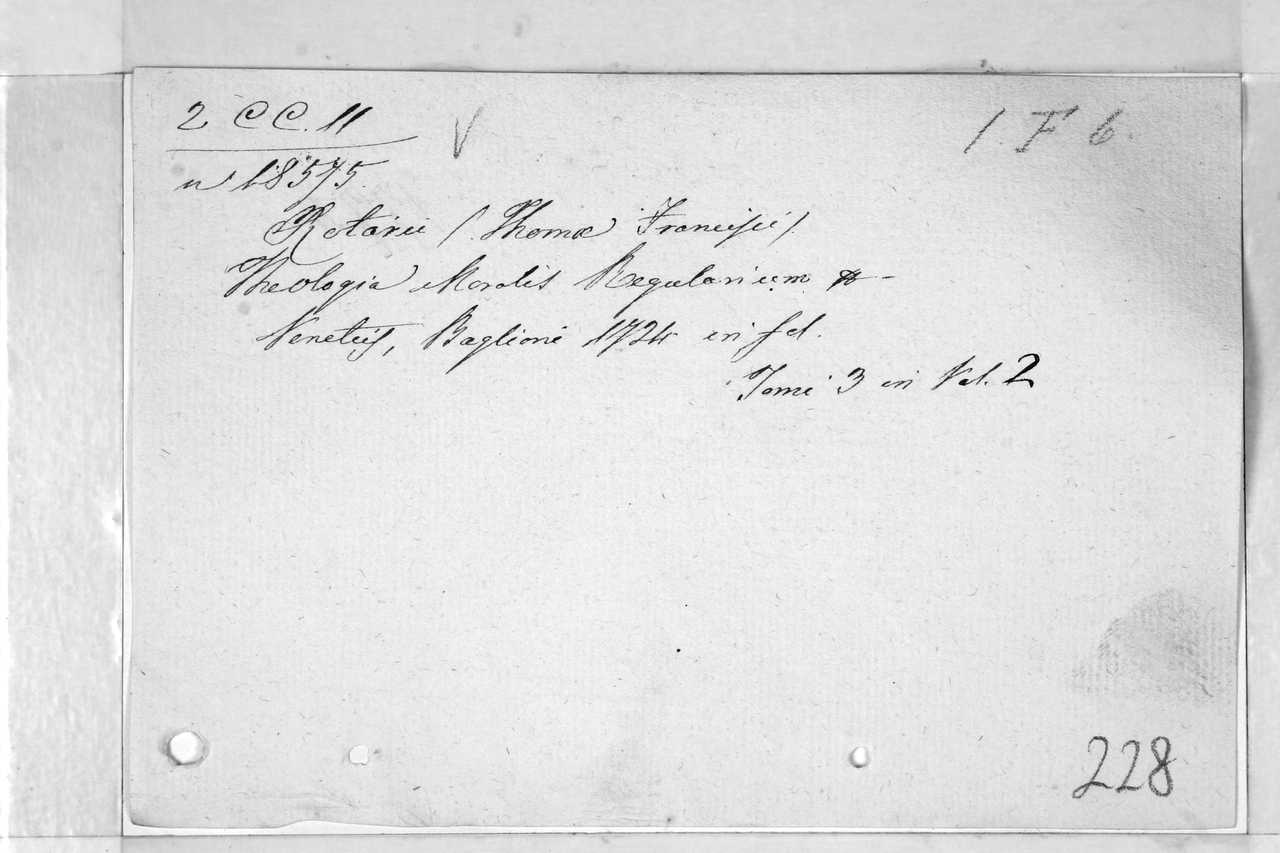 2 CC. 11 V 1. F 6.
n 18575.
Rotarii (Thomæ Francisci).
Theologia Moralis Regularium
Venetiis, Baglioni 1724 in fol.
Tomi 3 in Vol. 2
228